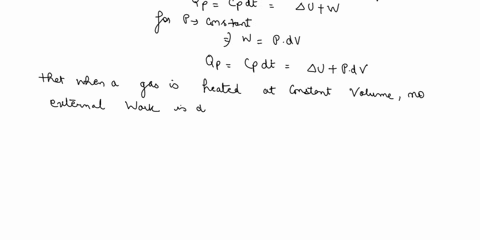 Qp = Cp dt = ΔU + W
for P → Constant
⇒ W = P.dV
Qp = Cp dt = ΔU + P.dV
thet when a gas is heated at Constant Volume, no
external Work is d